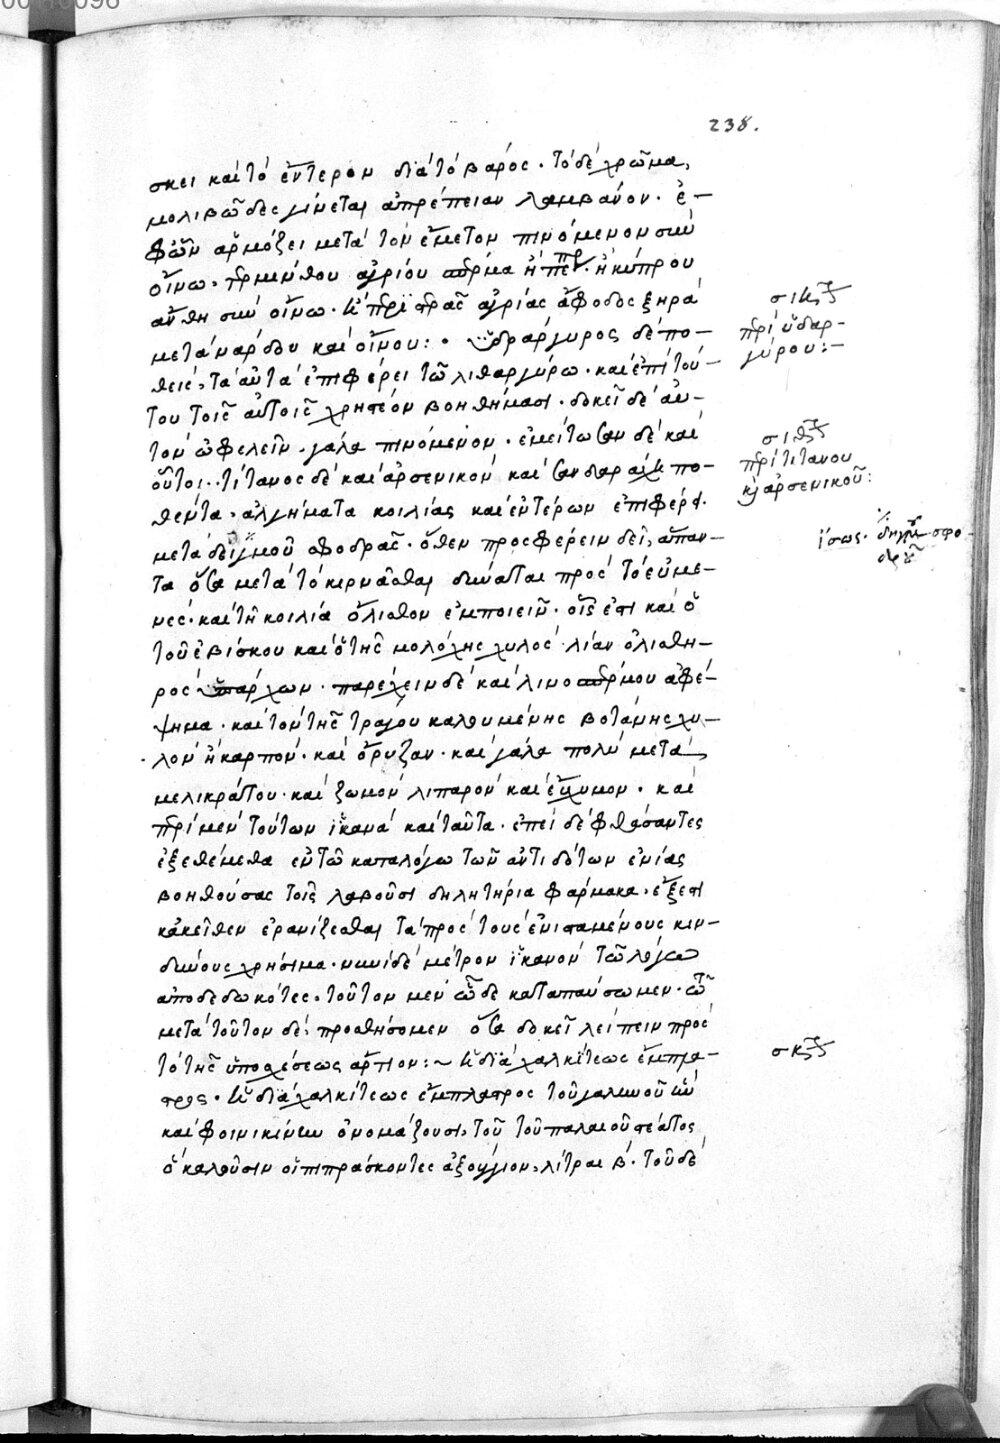 238.
σκει καὶ τὸ ἔντερον διὰ τὸ βάρος. τὸ δὲ χρῶμα,
μολιβῶδες γίνεται ἀπρέπειαν λαμβάνον. ἐ-
φ' ὧν ἁρμόζει μετὰ τὸν ἔμετον πινόμενον σὺν
οἴνω. ὁρμίνθου ἀγρίου σπέρμα ἢ πέπερ. ἢ κύπρου
ἄνθη σὺν οἴνω. καὶ περιστερᾶς ἀγρίας ἄφοδος ξηρὰ
μετὰ νάρδου καὶ οἴνου: . ὑδράργυρος δὲ πο-
θεὶς, τὰ αὐτὰ ἐπιφέρει τῶ λιθαργύρω. καὶ ἐπὶ τού-
του τοῖς αὐτοῖς χρηστέον βοηθήμασι. δοκεῖ δὲ αὐ-
τὸν ὠφελεῖν, γάλα πινόμενον. ἐμείτωσαν δὲ καὶ
οὗτοι. . τίτανος δὲ καὶ ἀρσενικὸν καὶ σανδαράχη πο-
θέντα. ἀλγήματα κοιλίας καὶ ἐντέρων ἐπιφέρει.
μετὰ δειγμοῦ σφοδρᾶς. ὅθεν προσφέρειν δεῖ, ἅπαν-
τα ὅσα μετὰ τὸ κερνᾶσθαι δύναται πρὸς τὸ εὐμε-
νὲς. καὶ τῆ κοιλία ὄλισθον ἐμποιεῖν. οἷός ἐστι καὶ ὁ
τοῦ ἐβίσκου καὶ ὁ τῆς μολόχης χυλὸς λίαν ὀλισθη-
ρὸς ὑπάρχων. παρέχειν δὲ καὶ λινοσπέρμου ἀφέ-
ψημα. καὶ τὸν τῆς τράγου καλουμένης βοτάνης χυ-
λὸν ἢ καρπὸν. καὶ ὄρυζαν. καὶ γάλα πολὺ μετὰ
μελικράτου. καὶ ζωμὸν λιπαρὸν καὶ εὔχυμον. καὶ
περὶ μὲν τούτων ἱκανὰ καὶ ταῦτα. ἐπεὶ δὲ φθάσαντες
ἐξεθέμεθα ἐν τῶ καταλόγω τῶν ἀντιδότων ἐνίας
βοηθούσας τοῖς λαβοῦσι δηλητήρια φάρμακα. ἔξεστι
κἀκεῖθεν ἐρανίζεσθαι τὰ πρὸς τοὺς ἐνισταμένους κιν-
δύνους χρήσιμα. νυνὶ δὲ μέτρον ἱκανὸν τῶ λόγω
ἀποδεδωκότες, τοῦτον μὲν ὧδε καταπαύσωμεν.
μετὰ τοῦτον δὲ, προσθήσομεν ὅσα δοκεῖ λείπειν πρὸς
τὸ τῆς ὑποσχέσεως ἄρτιον: ~ ἡ διὰ χαλκίτεως ἔμπλα-
στρος. ἡ διὰ χαλκίτεως ἔμπλαστρος τοῦ γαληνοῦ ἣν
καὶ φοινικίνην ὀνομάζουσι. τοῦ τοῦ παλαιοῦ στέατος
ὃ καλοῦσιν οἱ πιπράσκοντες ἀξούγγιον, λίτραι β. τοῦ δὲ
περὶ ὑδαρ-
γύρου: -
περὶ τιτάνου
καὶ ἀρσενικοῦ:
ἴσως. δηγμοῦ σφο
δροῦ